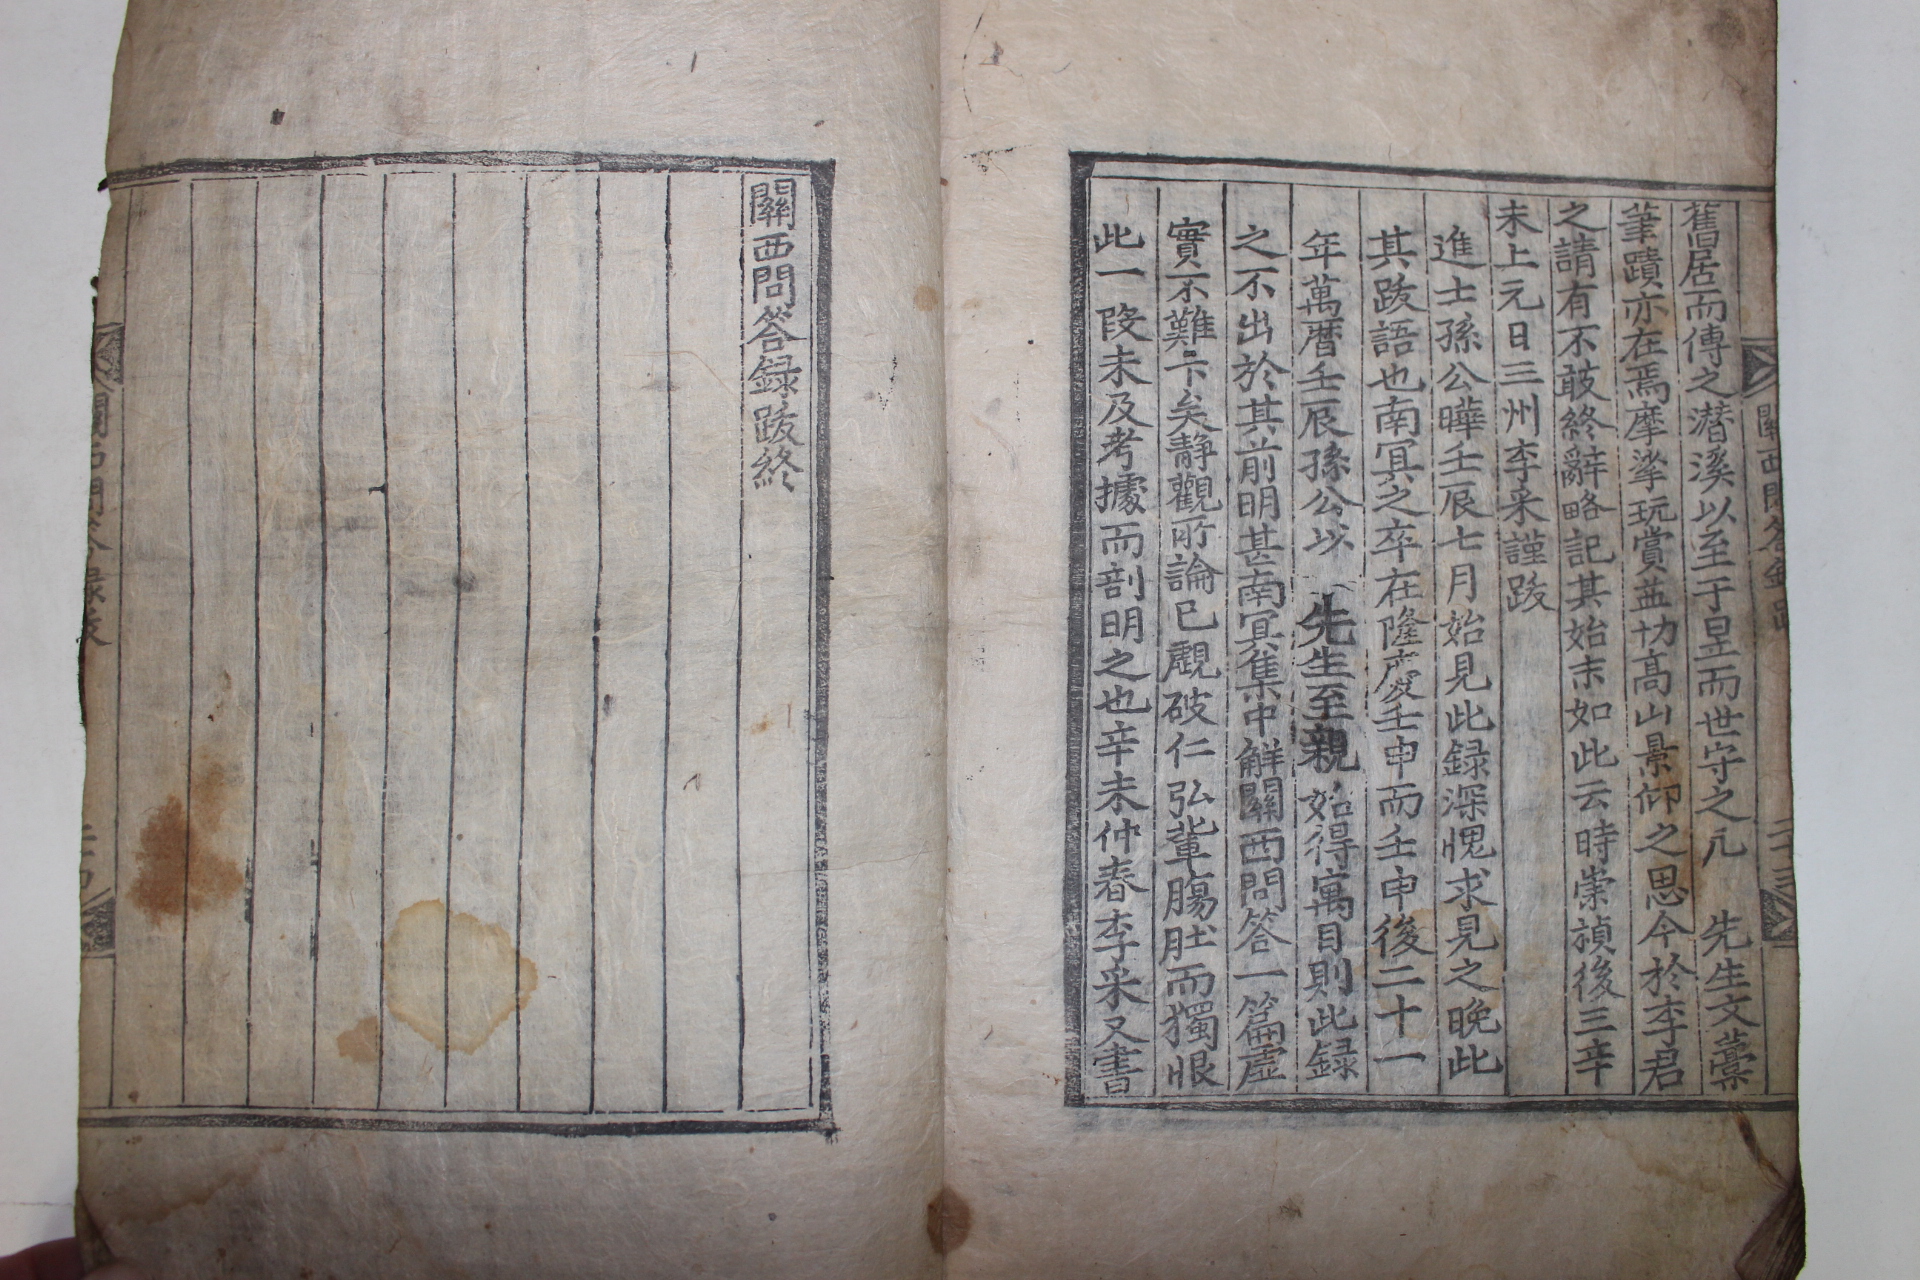 舊居而傳之潛溪以至于昱而世守之凡 先生文藁
筆蹟亦在焉摩挲玩賞益切高山景仰之思今於李君
之請有不敢終辭略記其始末如此云時崇禎後三辛
未上元日三州李采謹跋
進士孫公曄壬辰七月始見此録深愧求見之晚此
其跋語也南冥之卒在隆慶壬申而壬申後二十一
年萬曆壬辰孫公以 先生至親始得寓目則此録
之不出於其前明甚南冥集中觧關西問答一篇虛
實不難卞矣靜觀所論已覰破仁弘輩膓肚而獨恨
此一段未及考據而剖明之也辛未仲春李采又書
關西問答録跋終